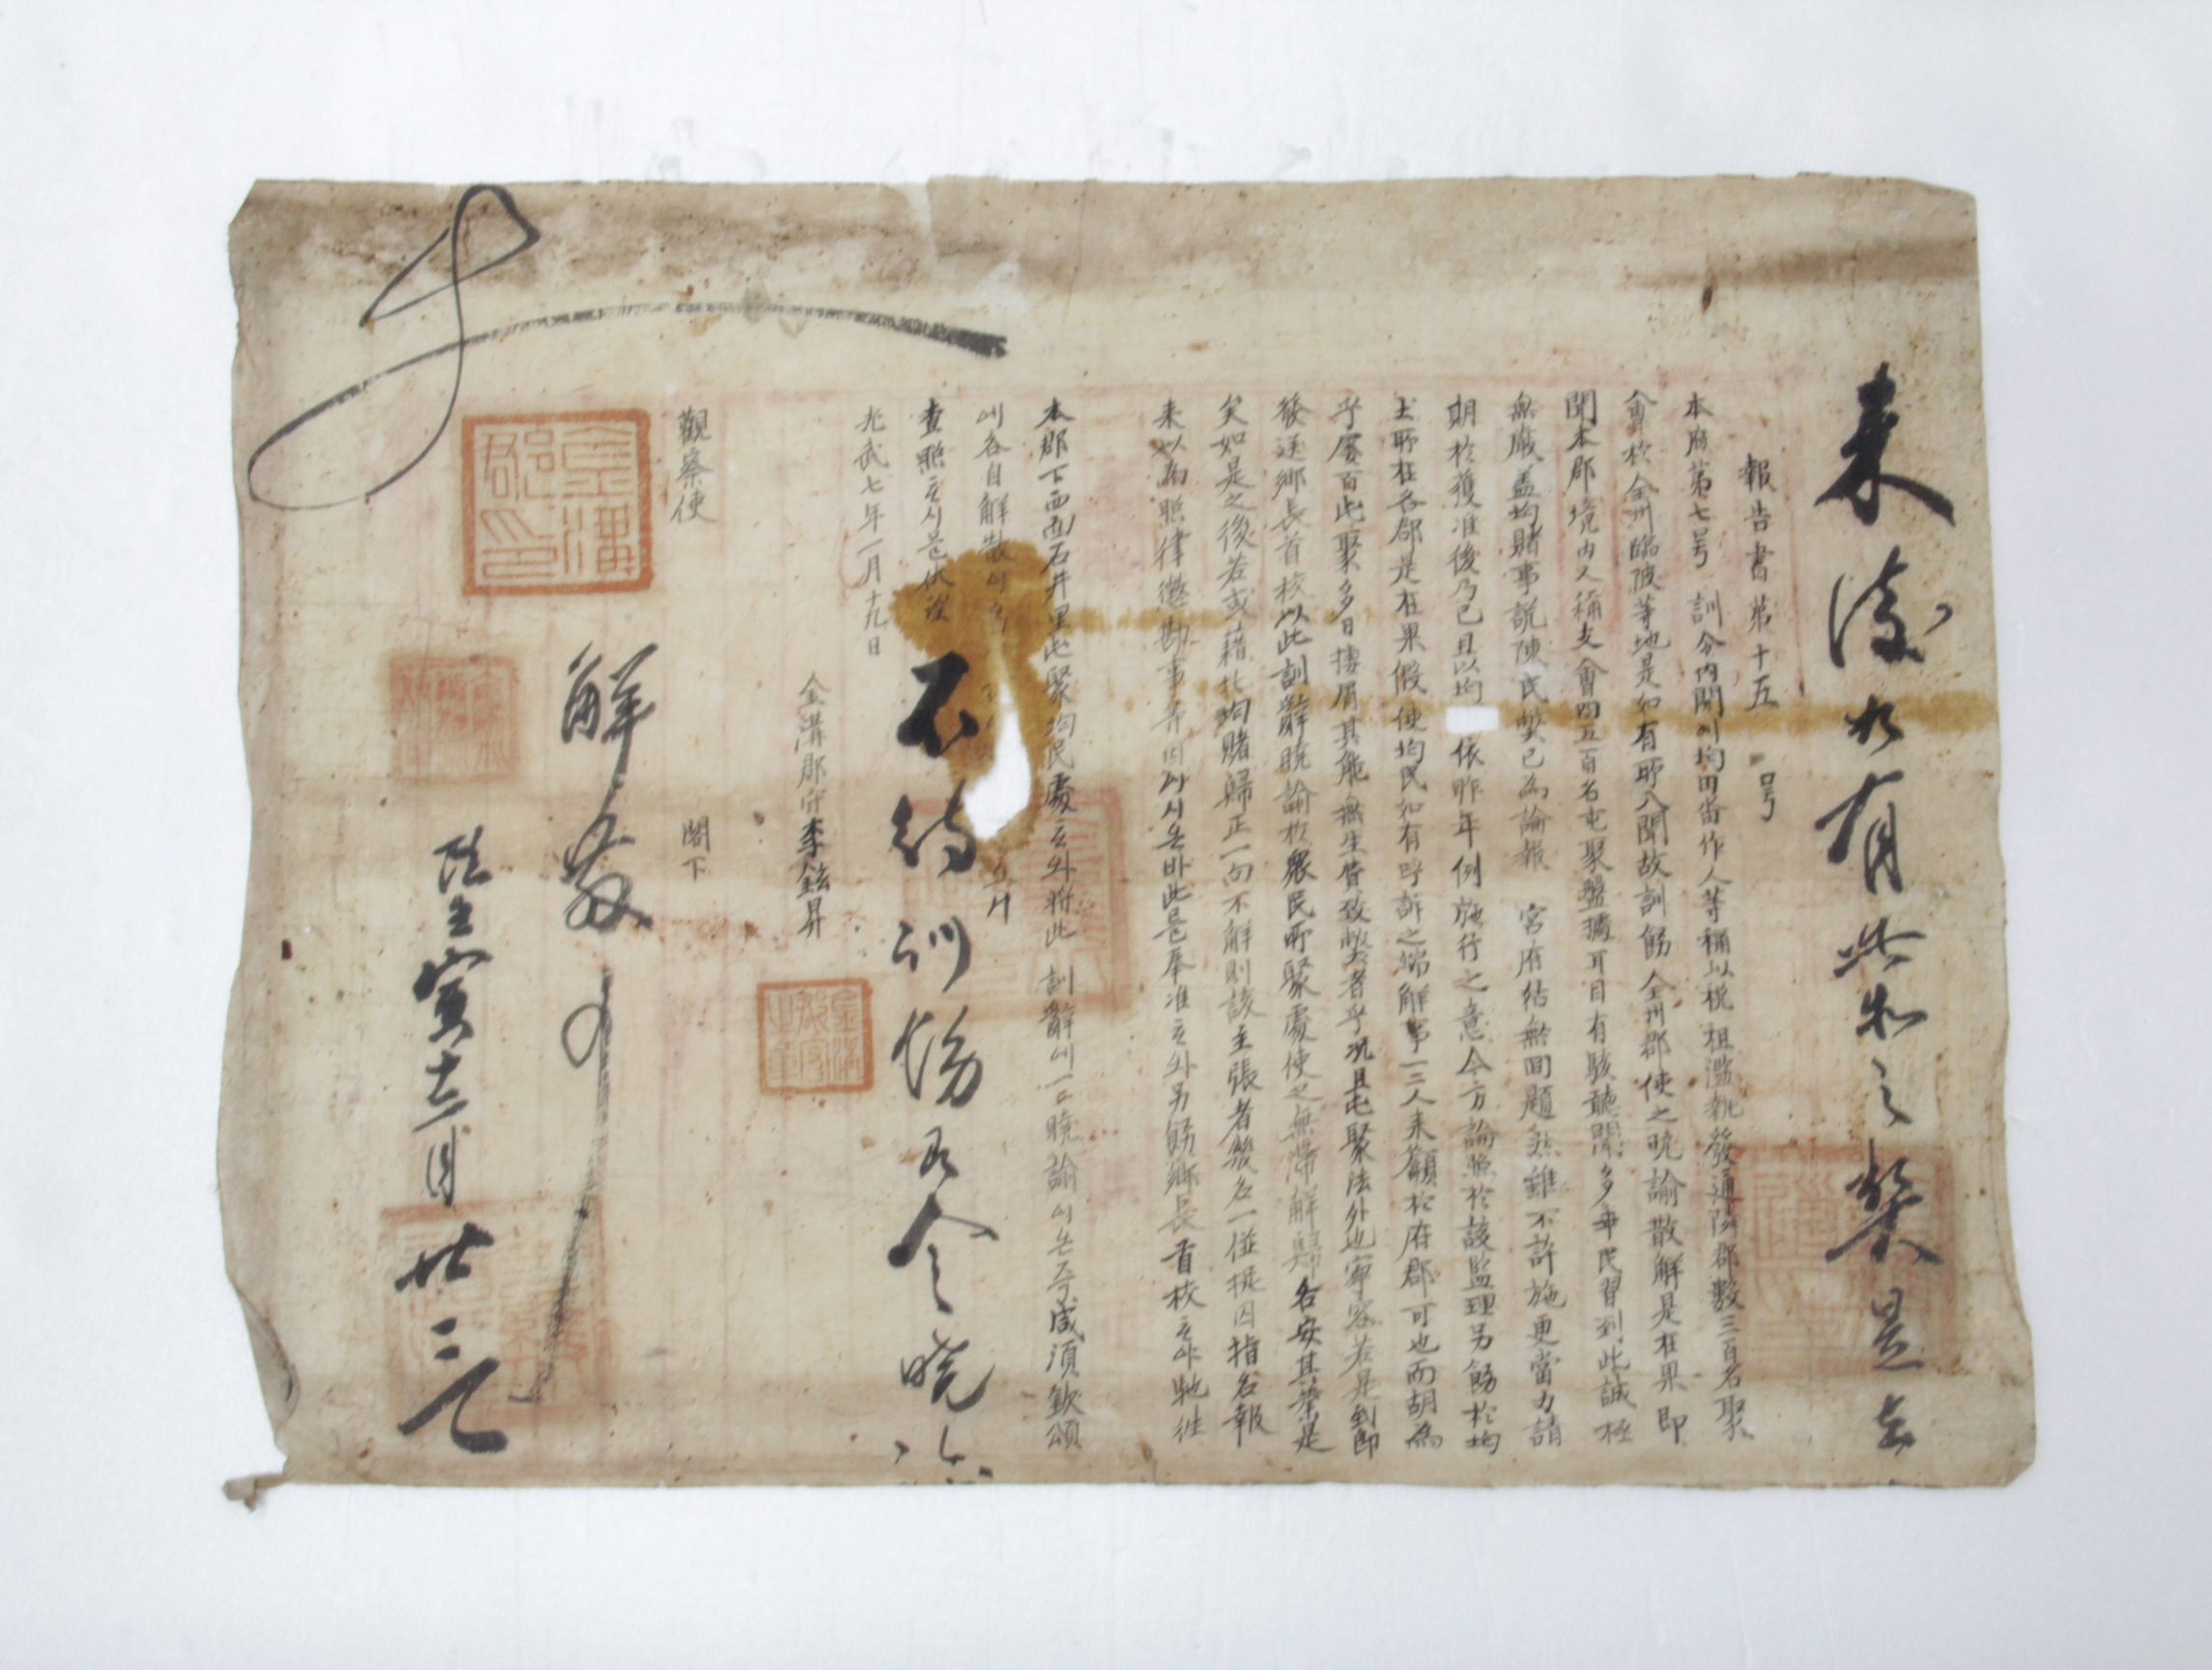 來流如有此等之弊是去
報告書第十五号
本府第七号訓令內開에均田畓作人等稱以稅租濫執發通隣郡數三百名聚
會於全州臨陂等地是如有所入聞故訓飭全州郡使之曉諭散解是在果即
聞本郡境內又稱支會四五百名屯聚盤據耳目有駭聽聞多年民習到此誠極
無嚴盖均賭事說陳民弊已爲論報宮府姑無回題然雖不許施更當力請
期於獲准後乃已且以均 依昨年例施行之意今方論照於該監理另飭於均
土所在各郡是在果假使均民如有呼訴之端解事一二人來籲於府郡可也而胡爲
乎屢百屯聚多日摟屑其能無生脅致弊者乎況且屯聚法外也寧容若是到即
發送鄕長首校以此訓辭曉諭於衆民所聚處使之無滯解歸各安其業是
矣如是之後若或藉托均賭歸正一向不解則該主張者幾名一倂捉囚指名報
來以爲照律懲勘事等因이시온바此是奉准之外另飭鄕長首校馳往
本郡下西面石井里屯聚均民處외將此訓辭에一一曉諭이온즉咸須欽頌
各自解散
查照하시믈伏望
光武七年一月十九日
金溝郡守李鉉昇
觀察使 閣下
不待訓飭另念曉諭
解散事
陰壬寅十二月廿三
金溝郡印